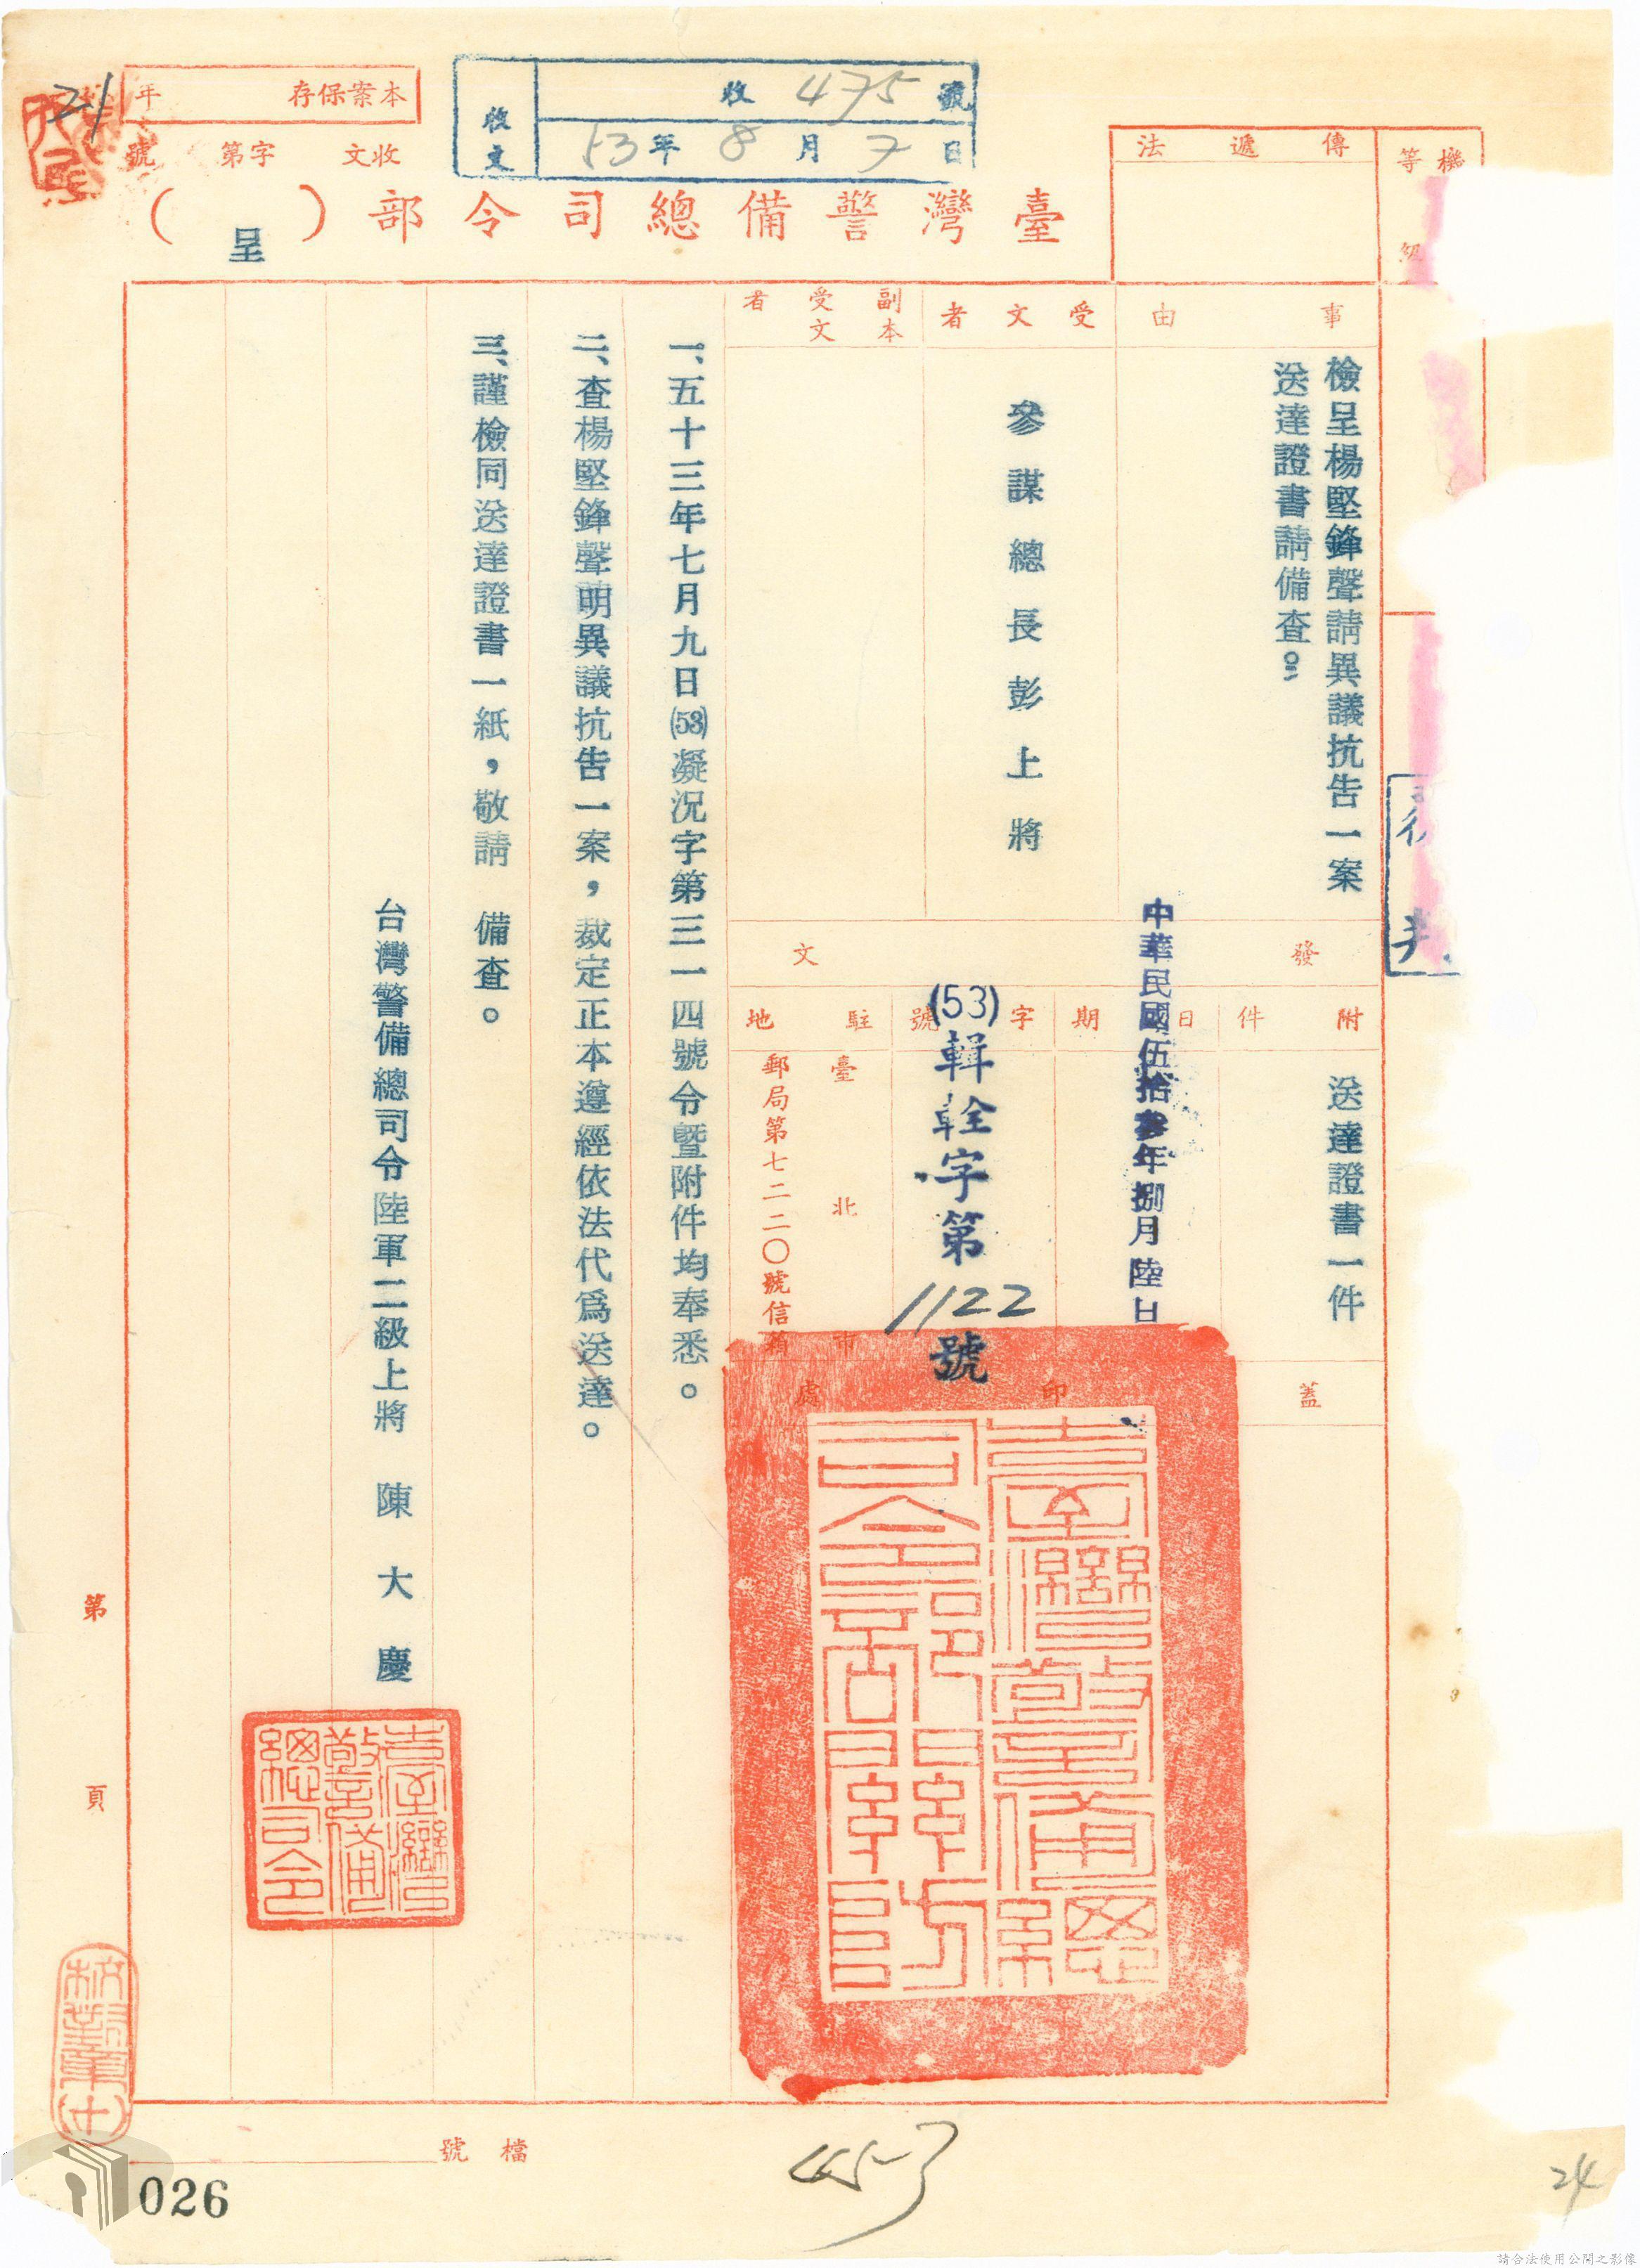 本案保存 年
收文 字第 號
21
收文
收 475 號
53年8月7日
臺灣警備總司令部( 呈 )
機
等級
傳遞法
事由
檢呈楊堅鋒聲請異議抗告一案
送達證書請備查。
受文者
參謀總長彭上將
副本受文者
發文
附件
送達證書一件
日期
中華民國伍拾參年捌月陸日
字號
(53)輯輇字第1122號
駐地
臺北市
郵局第七二二〇號信箱
蓋印處
臺灣警備總
司令部關防
一、五十三年七月九日(53)凝況字第三一四號令暨附件均奉悉。
二、查楊堅鋒聲明異議抗告一案,裁定正本遵經依法代為送達。
三、謹檢同送達證書一紙,敬請 備查。
台灣警備總司令陸軍二級上將 陳大慶
臺灣
警備
總司令
第 頁
檔號
026
24
請合法使用公開之影像